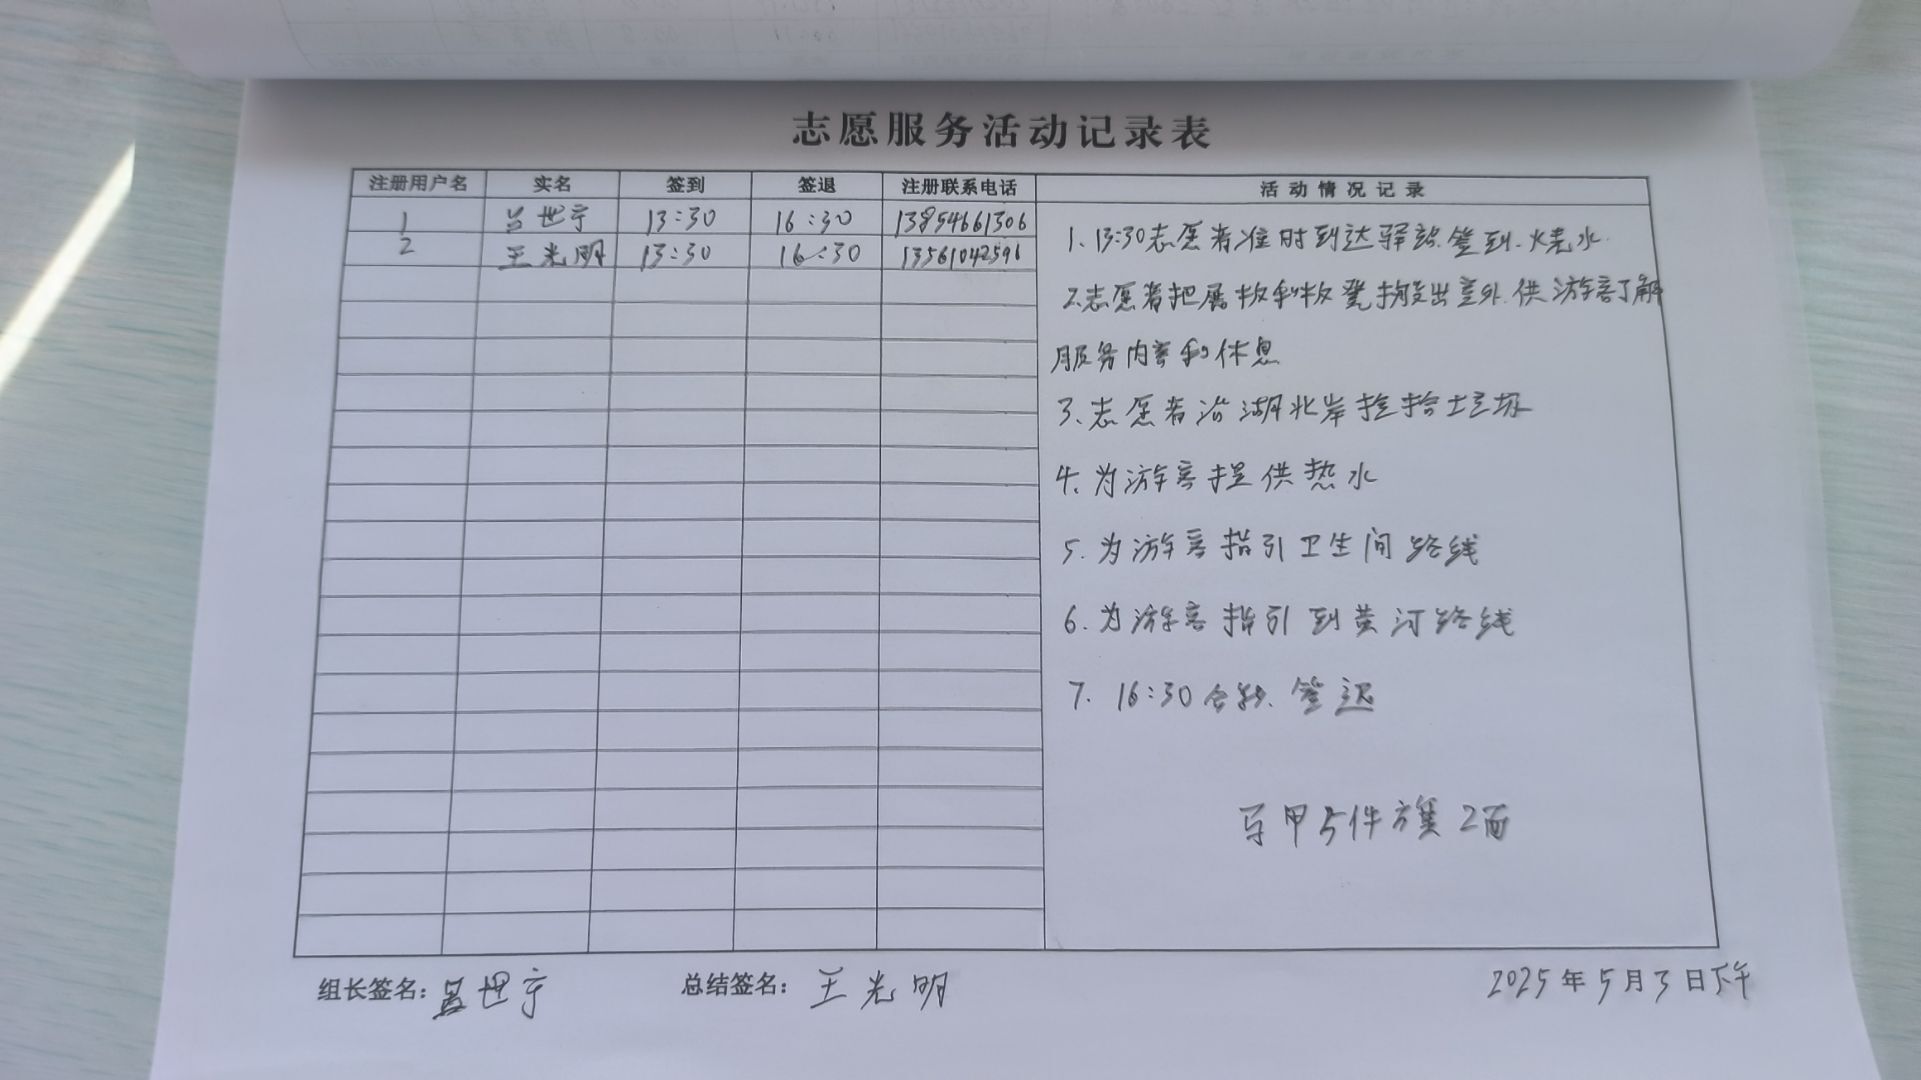 志愿服务活动记录表
注册用户名 实名 签到 签退 注册联系电话 活动情况记录
1 吕世宁 13:30 16:30 13854661306
2 王光明 13:30 16:30 13561042596
1.13:30志愿者准时到达驿站.签到.烧水.
2.志愿者把展板和板凳搬出室外.供游客了解
服务内容和休息
3.志愿者沿湖北岸捡拾垃圾
4.为游客提供热水
5.为游客指引卫生间路线
6.为游客指引到黄河路线
7. 16:30合影.签退
马甲5件旗2面
组长签名:吕世宁 总结签名: 王光明 2025年5月3日下午